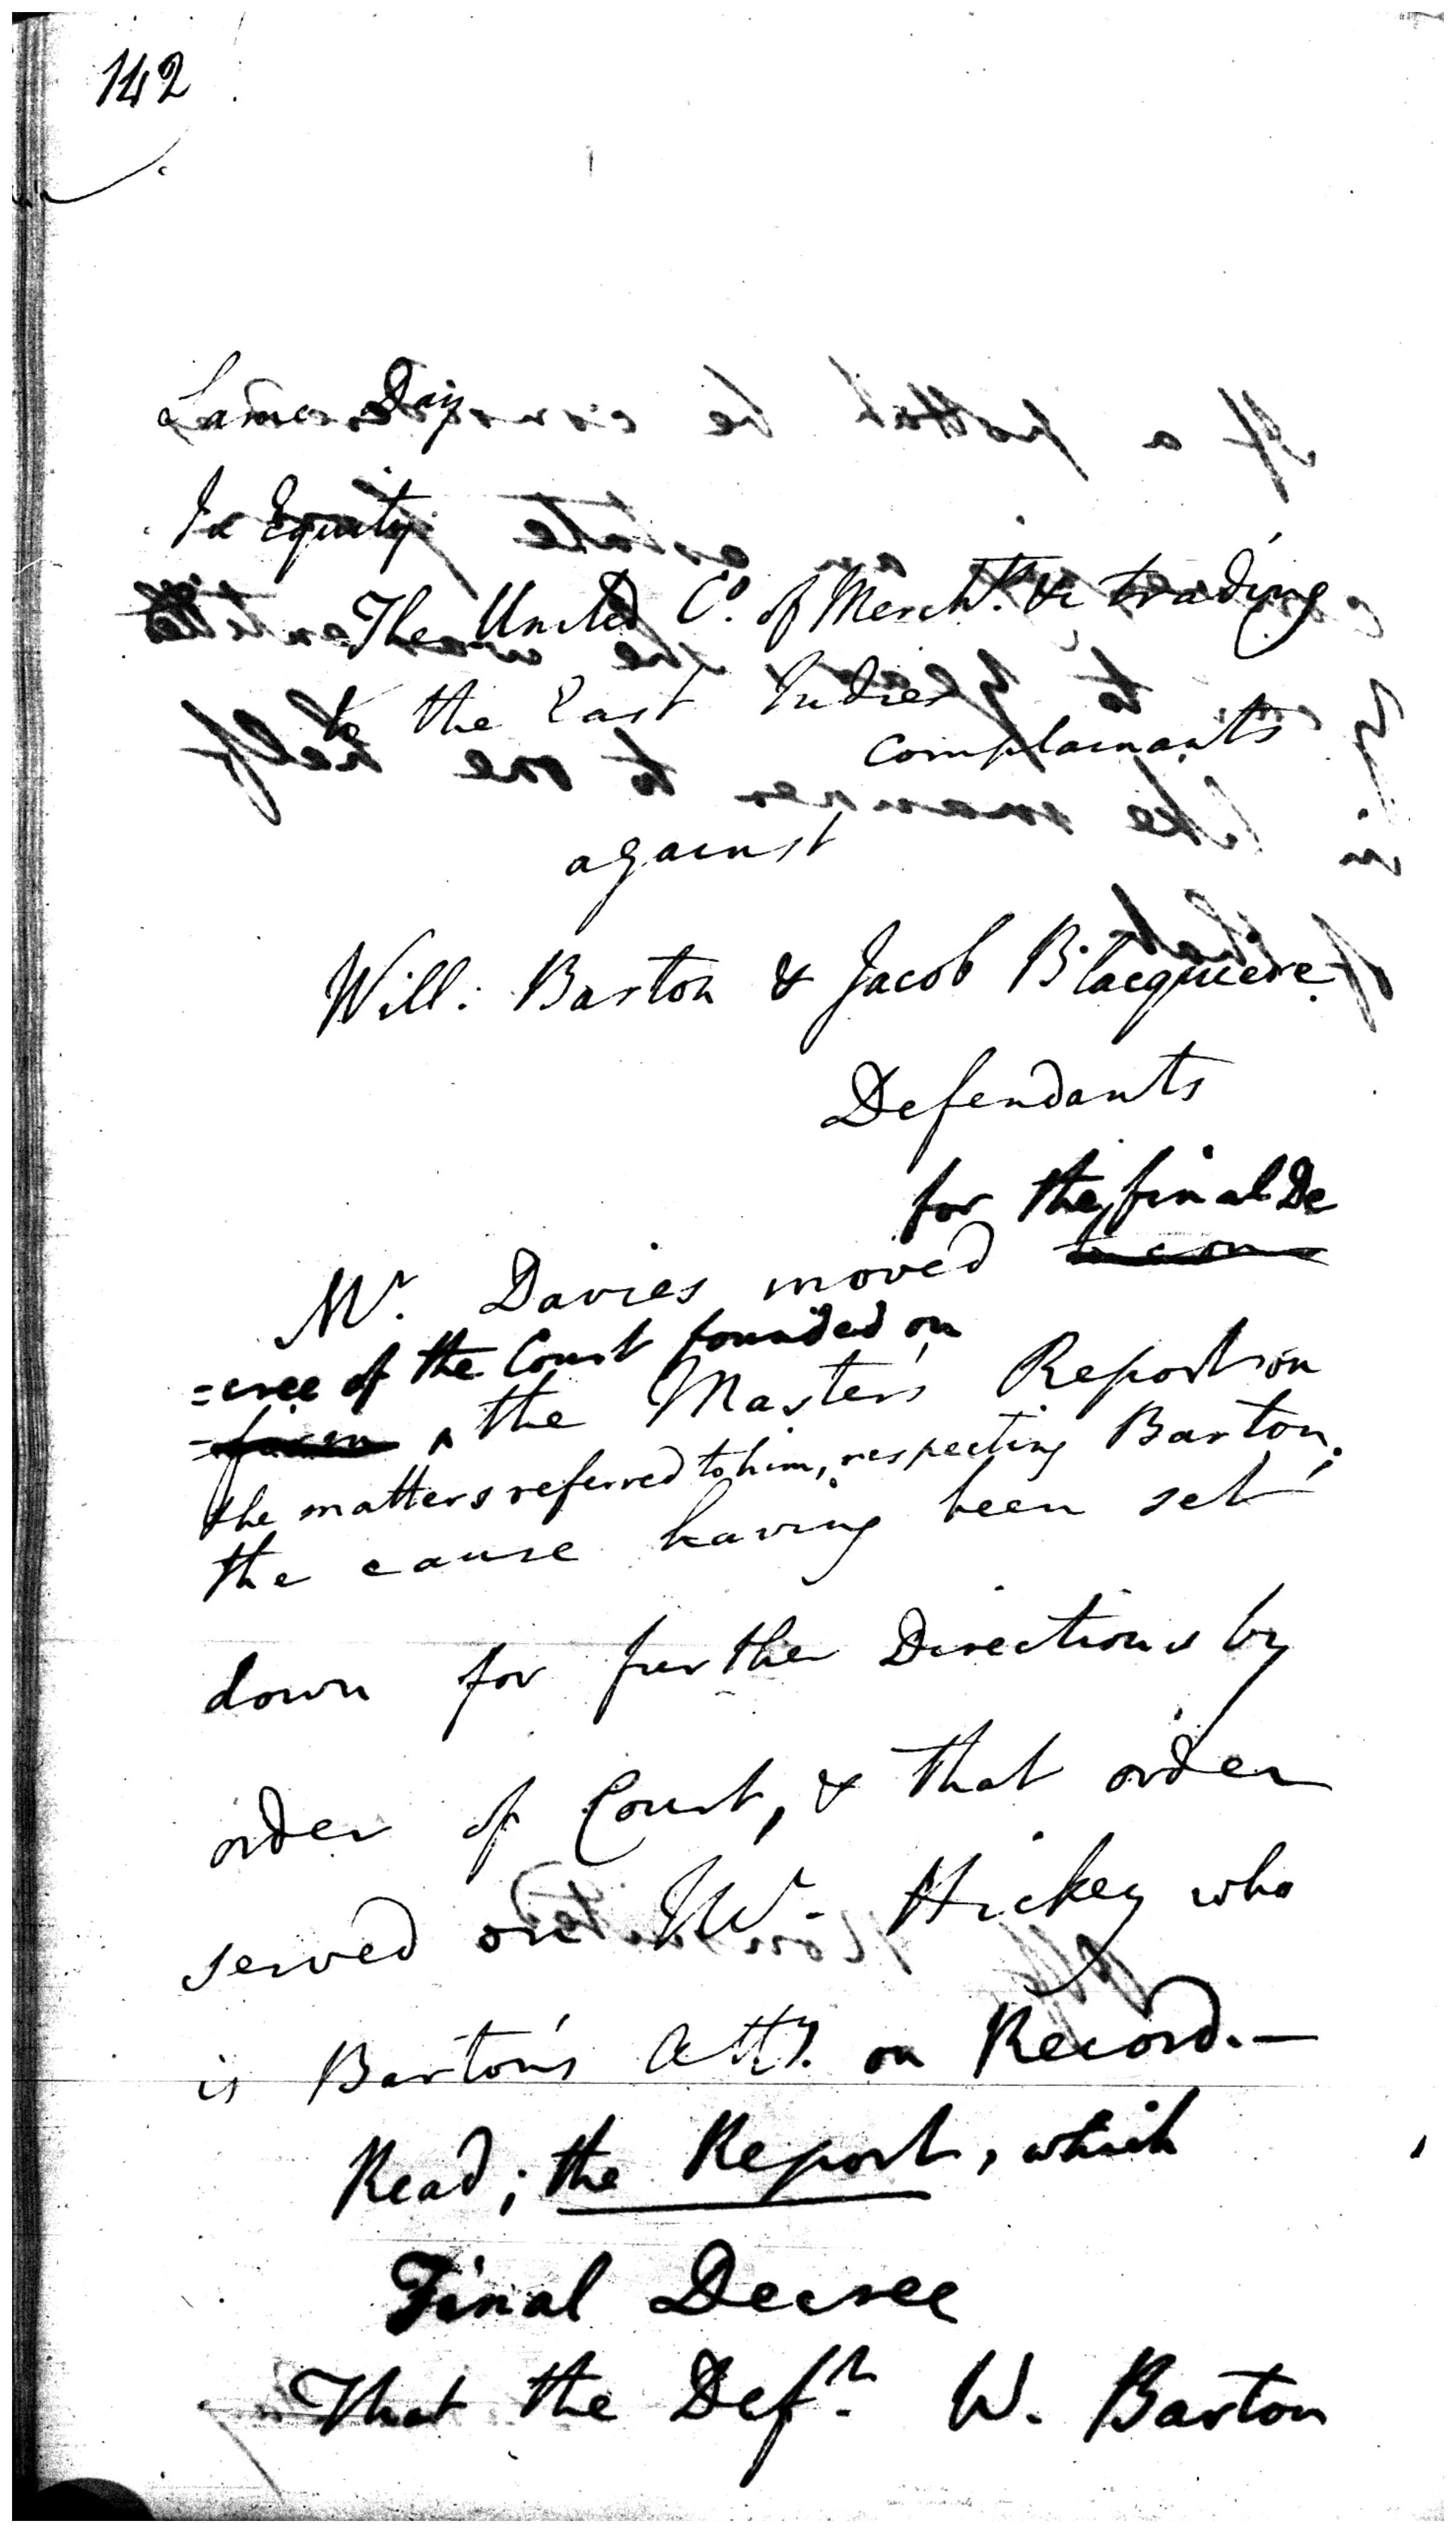 142
Same Day
In Equity
The United Co. of Mercht. &c trading
to the East Indies
Complainants
against
Will: Barton & Jacob Blacquiere
Defendants
for the final De
Mr. Davies moved to con
=cree of the Court founded on
=firm ^ the Master's Report on
the matters referred to him, respecting Barton;
the cause having been set
down for further Directions by
order of Court, & that order
served on Mr. Hickey who
is Barton's Atty. on Record.—
Read; the Report, which
Final Decree
That the Deft. W. Barton